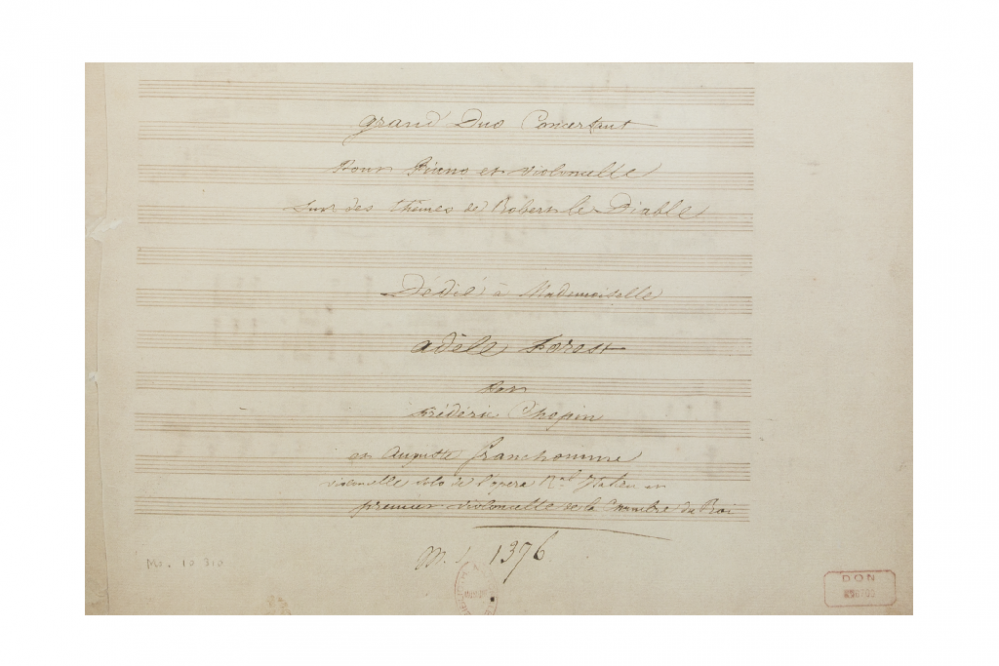 Grand Duo Concertant
Pour Piano et Violoncelle
Sur des thêmes de Robert le Diable
Dédié à Mademoiselle
adèle Forest
Par
frédéric Chopin
et Auguste franchomme
violoncelle solo de l'opera Ral Italien et
premier violoncelle de la Chambre du Roi
M. S. 1376
Ms. 10 310
DON